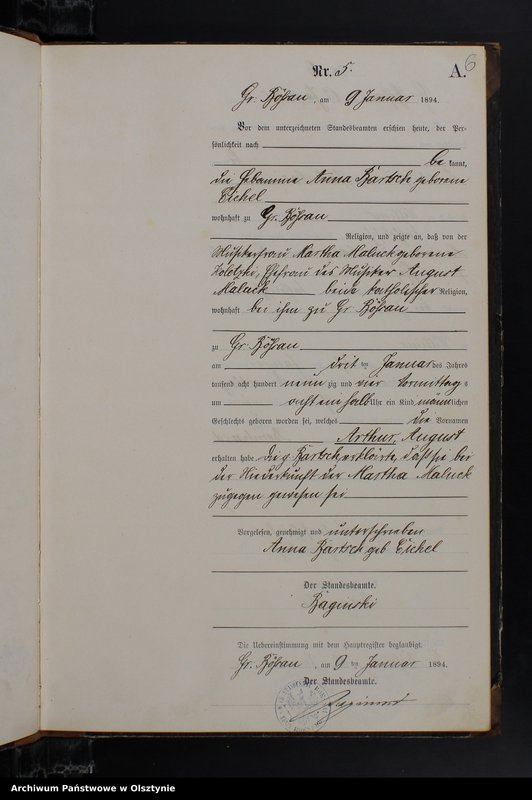 6
Nr. 5. A.
Gr. Bößau, am 9 Januar 1894.
Vor dem unterzeichneten Standesbeamten erschien heute, der Per-
sönlichkeit nach
be kannt,
die Hebamme Anna Bartsch geborene
Eichel
wohnhaft zu Gr. Bößau
Religion, und zeigte an, daß von der
Musikerfrau Martha Maluck geborene
Ehefrau des Musiker August
Maluck beide katholischer Religion,
wohnhaft bei ihm zu Gr. Bößau
zu Gr. Bößau
am drit ten Januar des Jahres
tausend acht hundert neun zig und vier Vormittag s
um acht ein halb Uhr ein Kind männlichen
Geschlechts geboren worden sei, welches die Vornamen
Arthur, August
erhalten habe. Die p Bartsch erklärte, daß sie bei
der Niederkunft der Martha Maluck
zugegen gewesen sei
Vorgelesen, genehmigt und unterschrieben
Anna Bartsch geb Eichel
Der Standesbeamte.
Baginski
Die Uebereinstimmung mit dem Hauptregister beglaubigt.
Gr. Bößau, am 9 ten Januar 1894.
Der Standesbeamte.
Baginski
Archiwum Państwowe w Olsztynie